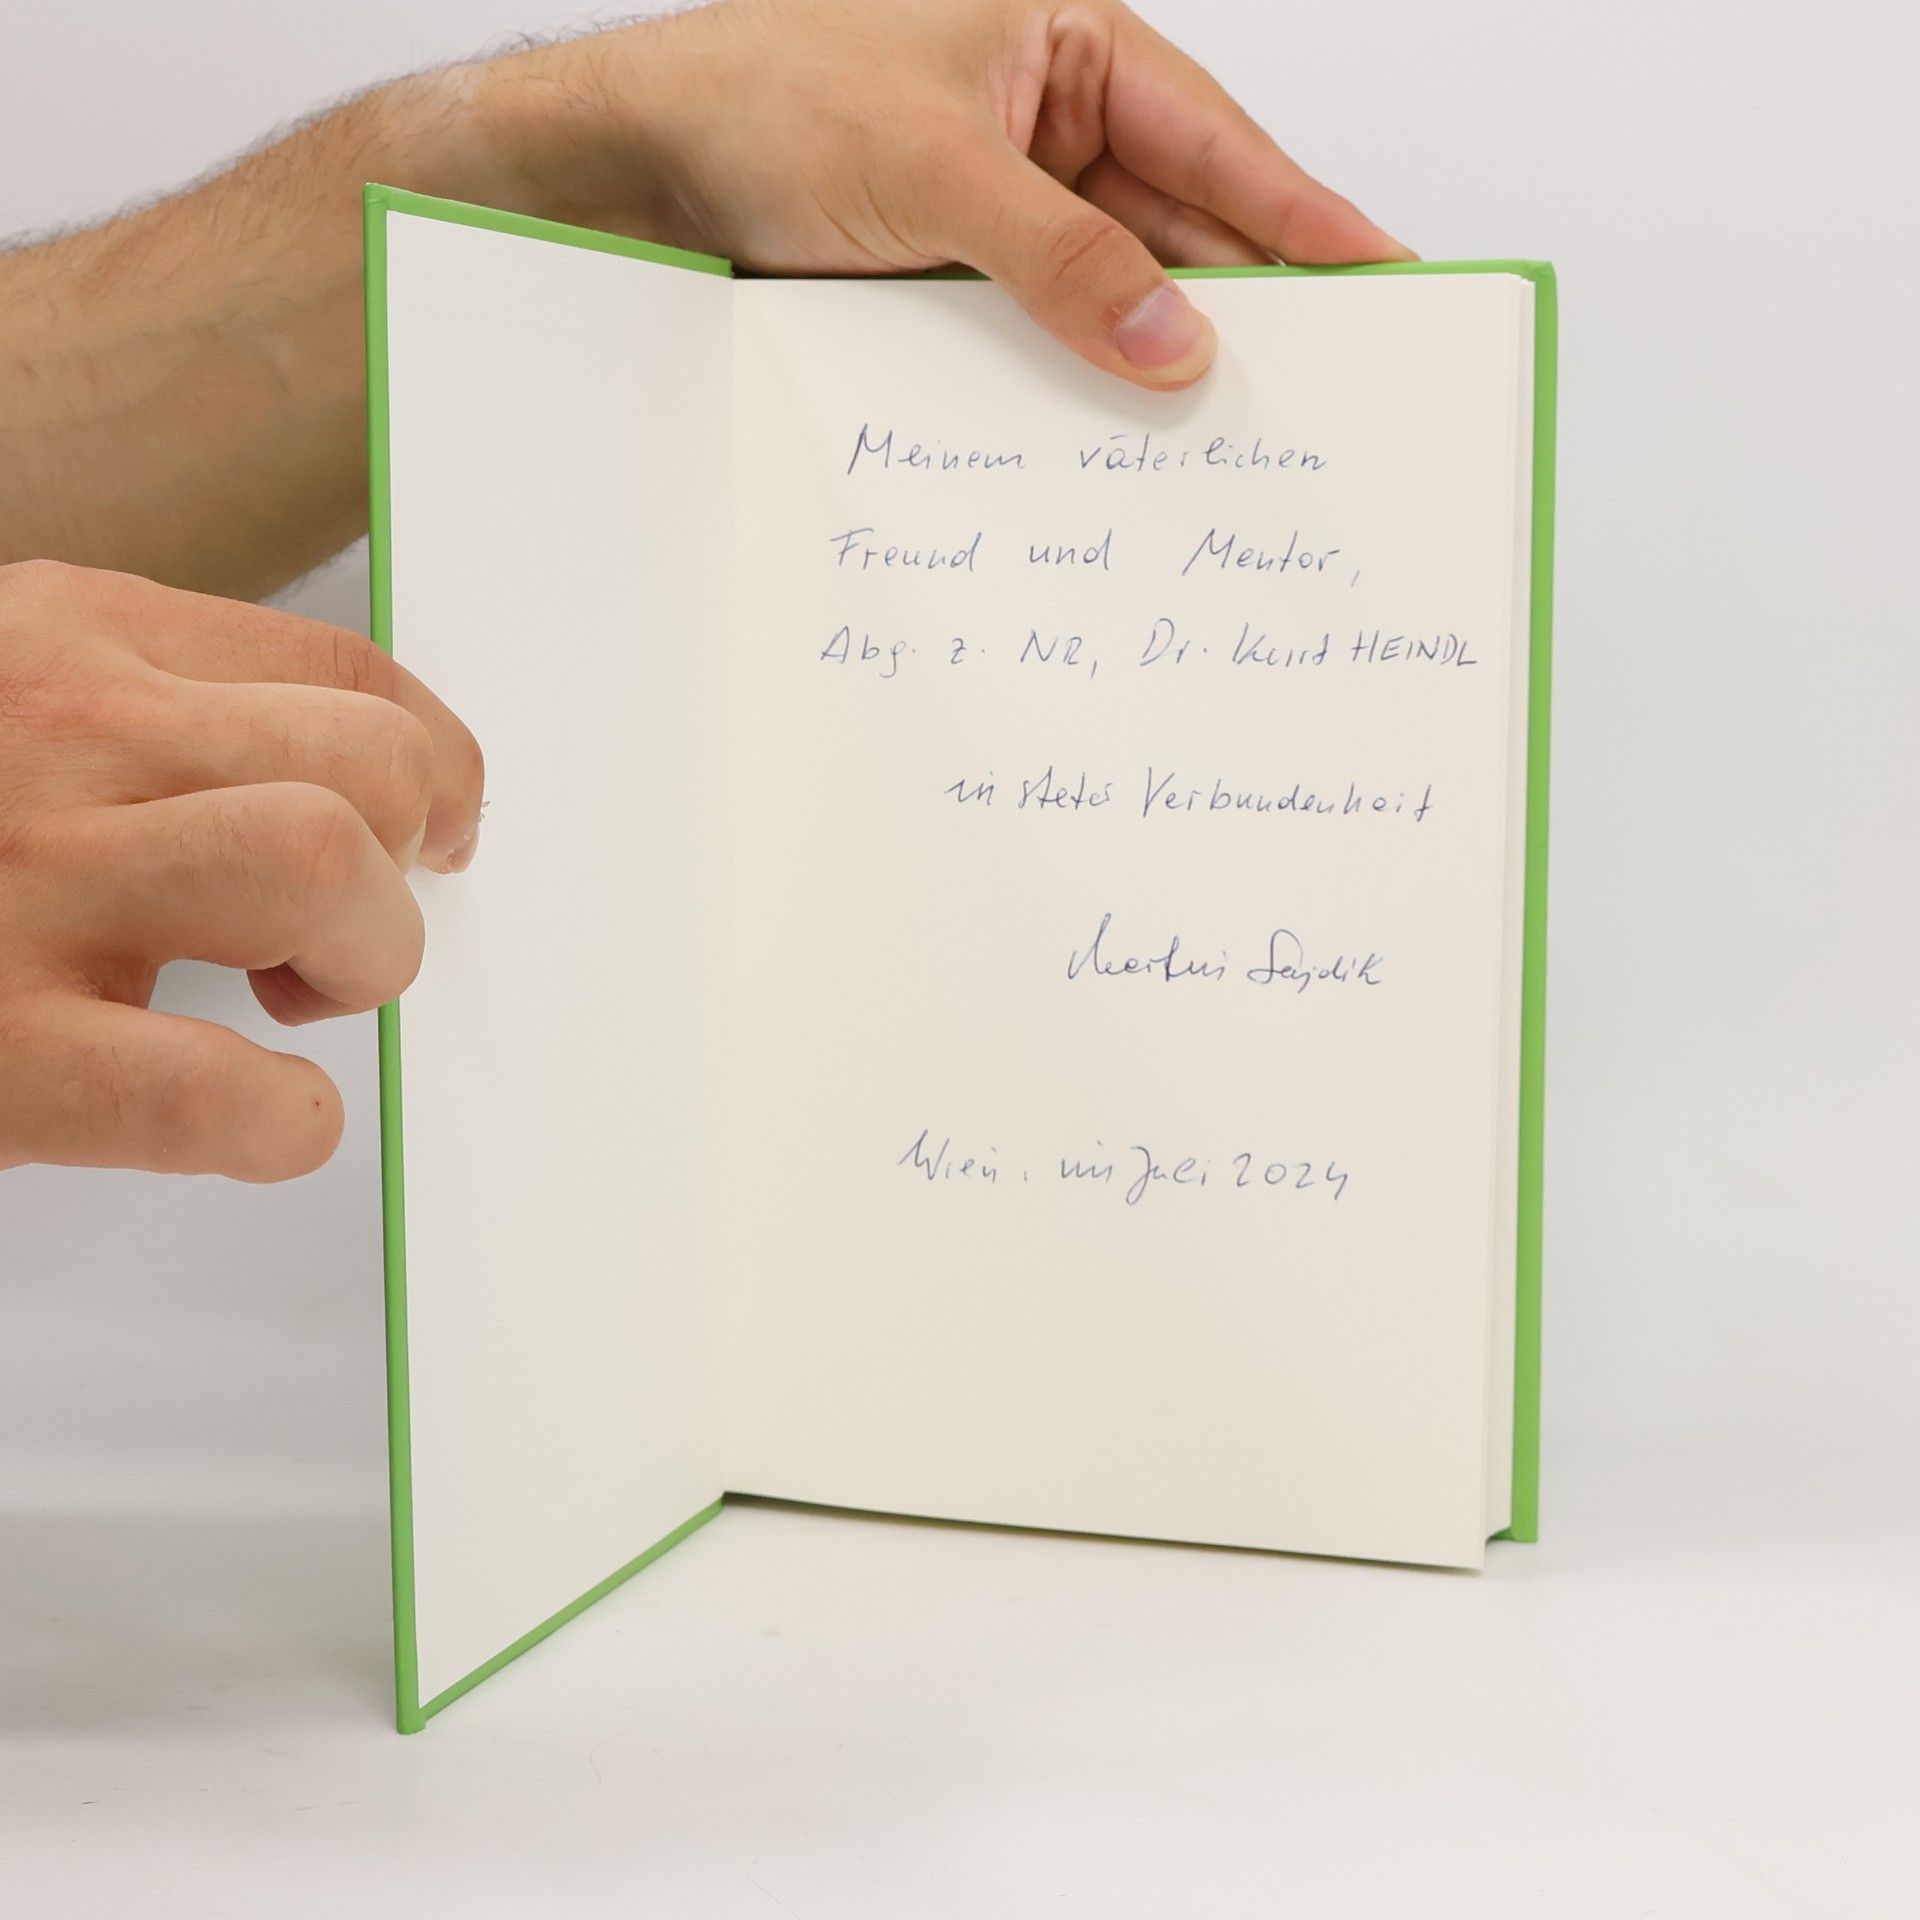 Meinem väterlichen
Freund und Mentor,
Abg. z. NR, Dr. Kurt HEINDL
in steter Verbundenheit
Martin Sajdik
Wien, im Juli 2024